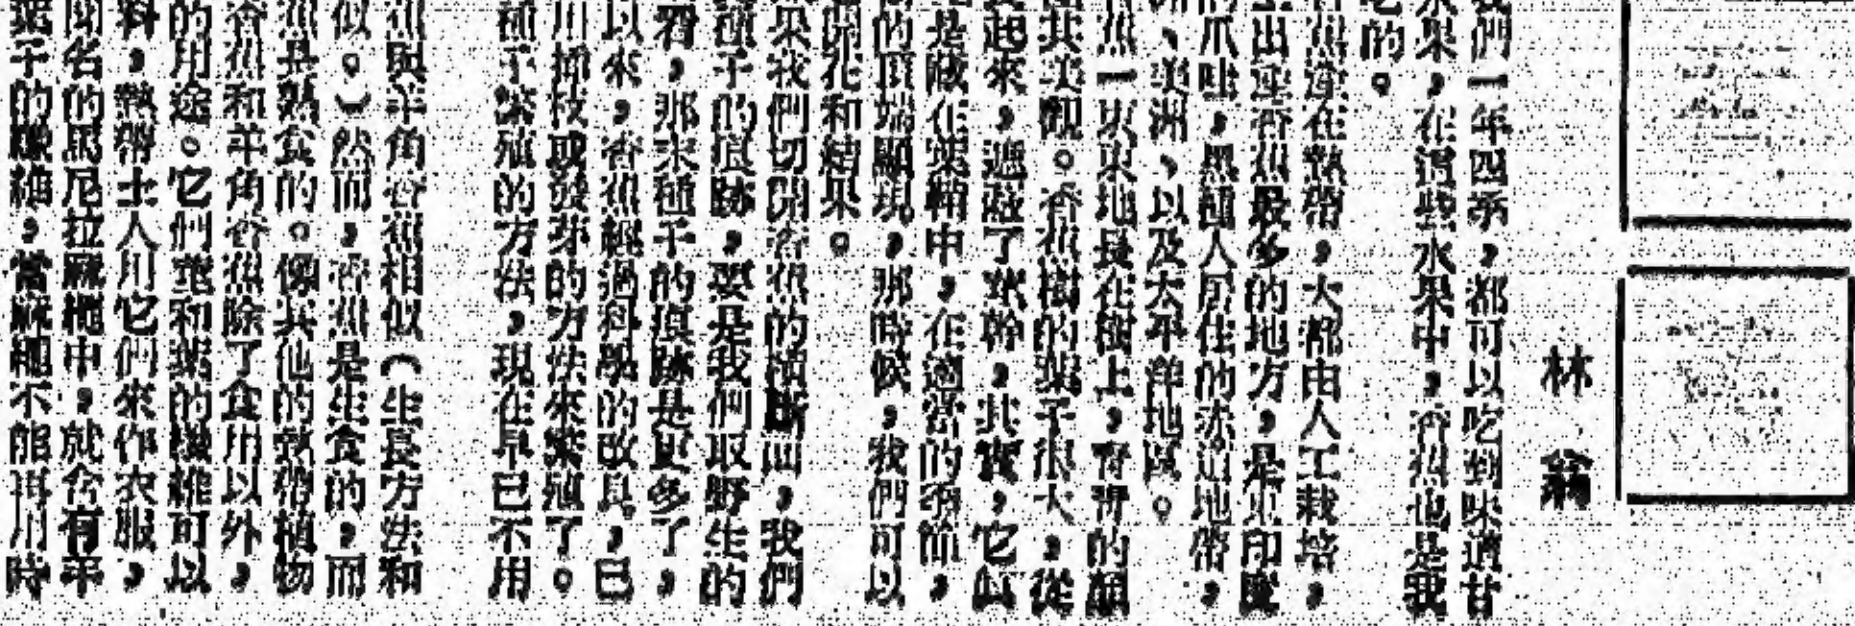 林翁
我們一年四季，都可以吃到味道甘
水果，在這些水果中，香蕉也是我
吃的。
香蕉產在熱帶，大都由人工栽培，
出產香蕉最多的地方，是東印度
的爪哇，黑種人所住的赤道地帶，
洲、美洲、以及太平洋地區。
蕉一束束地長在樹上，青青的顏
其美觀。香蕉樹的葉子很大，從
起來，遮蔽了莖幹，其實，它
是藏在葉鞘中，在適當的季節，
的頂端顯現，那時候，我們可以
開花和結果。
果我們切開香蕉的橫斷面，我們
種子的痕跡，要是我們取野生的
看，那末種子的痕跡是更多了，
以來，香蕉經過科學的改良，已
用插枝或發芽的方法來繁殖了。
種子繁殖的方法，現在早已不用
蕉與羊角香蕉相似（生長方法和
似。）然而，香蕉是生食的，而
蕉是熟食的。像其他的熱帶植物
香蕉和羊角香蕉除了食用以外，
的用途。它們莖和葉的纖維可以
料，熱帶土人用它們來作衣服，
聞名的馬尼拉麻繩中，就含有羊
葉子的纖維，當麻繩不能再用時